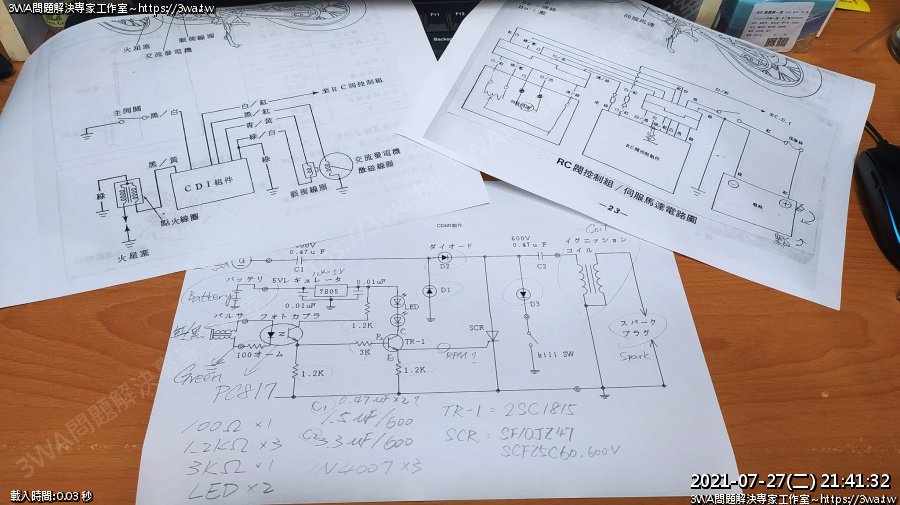 3WA問題解決專家工作室~https://3wa.tw
脈衝線圈
火星塞
交流發電機
主開關
黑/白
白/紅
黑/紅
青/黃
綠/白
至RC閥控制組
黑/黃
綠
綠
CDI組件
交流發電機
激磁線圈
脈衝線圈
點火線圈
火星塞
伺服馬達
F11
F12
至C.D.I
RC閥控制組件
RC閥控制組/伺服馬達電路圖
-23-
0.47uF
C1
ダイオード
D2
600V
0.47uF
C2
Coil
イグニッション
コイル
バッテリ
5Vレギュレータ
Battery
7805
0.01uF
0.01uF
LED
D1
D3
パルサ
フォトカプラ
1.2K
SCR
スパーク
プラグ
Spark
TR-1
C
E
3K
RPM?
kill SW
100オーム
1.2K
1.2K
Green
PC817
C1 0.47uF×2?
1.5uF/600
C2 3.3uF/600
1N4007×3
100Ω×1
1.2KΩ×3
3KΩ×1
LED×2
TR-1=2SC1815
SCR=SF10JZ47
SCF25C60.600V
3WA問題解決專家工作室
載入時間:0.03 秒
2021-07-27(二) 21:41:32
3WA問題解決專家工作室~https://3wa.tw